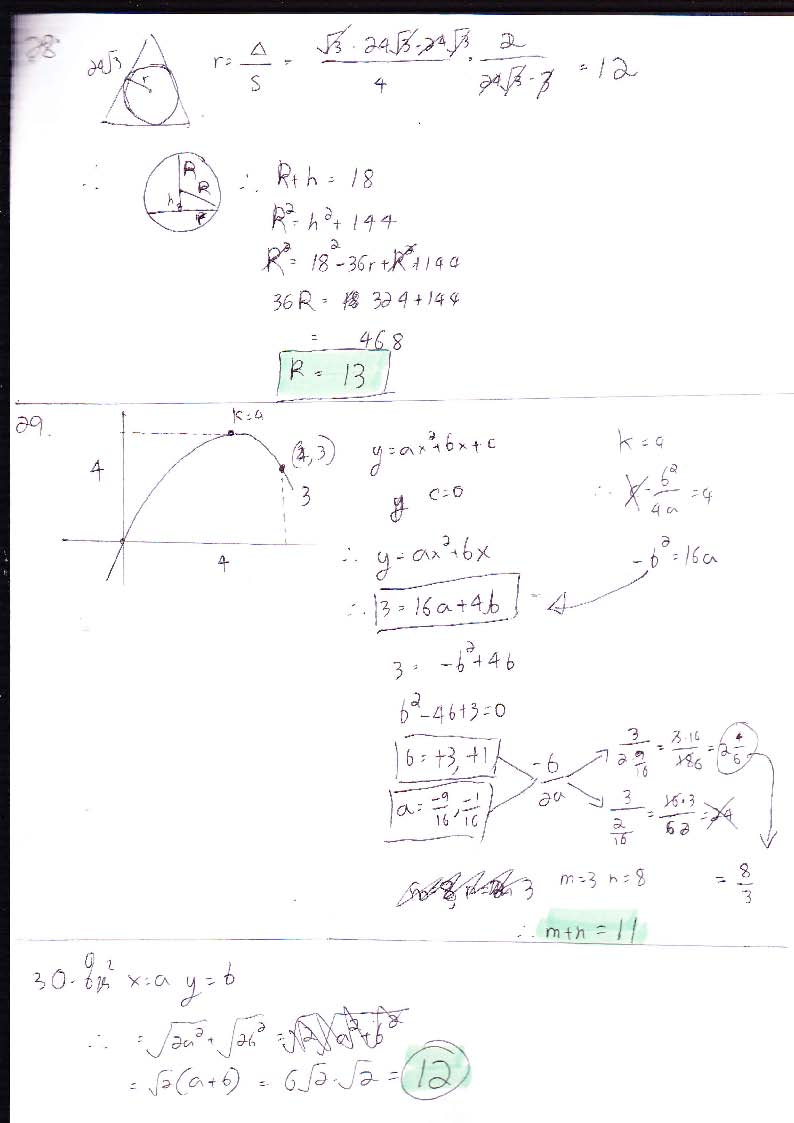 28
24√3
r
r = Δ/S = (√3 · 24√3 · 24√3)/4 · 2/(24√3 · 3) = 12
∴
R
R
h
r
∴ R+h = 18
R² = h² + 144
R² = 18² - 36r + R² + 144
36R = 324 + 144
= 468
R = 13
29.
k=4
(4,3)
3
4
4
y = ax² + bx + c
y c=0
∴ y = ax² + bx
∴ 3 = 16a + 4b
k = 4
∴ -b²/4a = 4
-b² = 16a
3 = -b² + 4b
b² - 4b + 3 = 0
b = +3, +1
a = -9/16, -1/16
-b/2a
3/(2 9/16) = 3·16/186 = 2 4/6
3/(2/16) = 16·3/2 = 24
= 8/3
m=3 n=8
∴ m+n = 11
30. x=a y=b
∴ = √2a² + √2b² = √2√a²+b²
= √2(a+b) = 6√2·√2 = 12